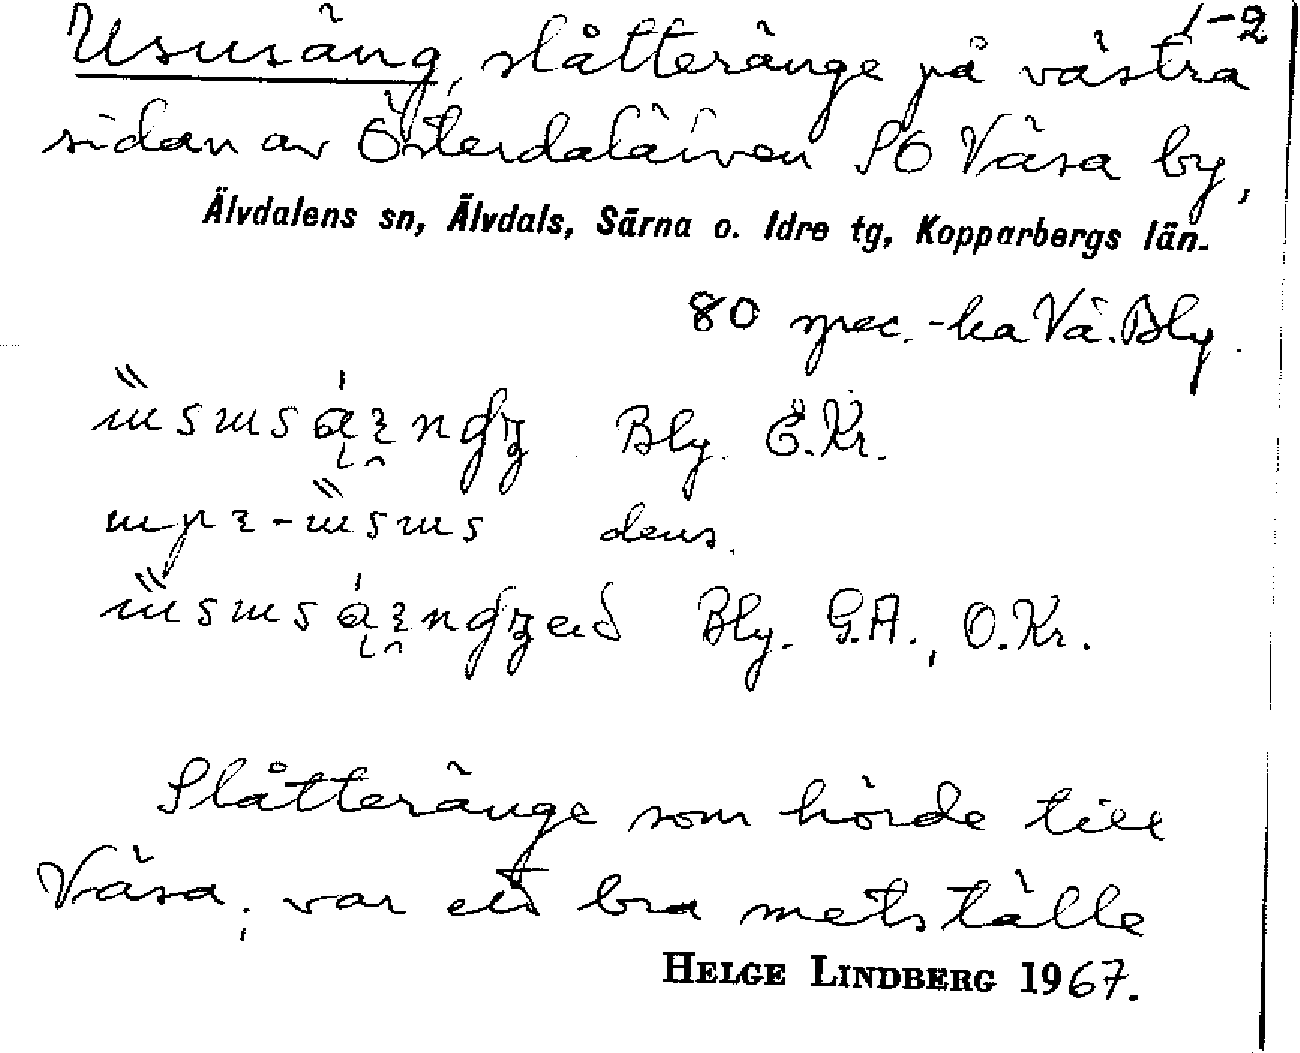 1-2
Ususäng, slåtteränge på västra
sidan av Österdalälven SO Väsa by,
Älvdalens sn, Älvdals, Särna o. Idre tg, Kopparbergs län.
80 spec.-ka Vä. Bly.
Bly. E.Kr.
dens.
Bly. G.A., O.Kr.
Slåtteränge som hörde till
Väsa; var ett bra metställe
HELGE LINDBERG 1967.